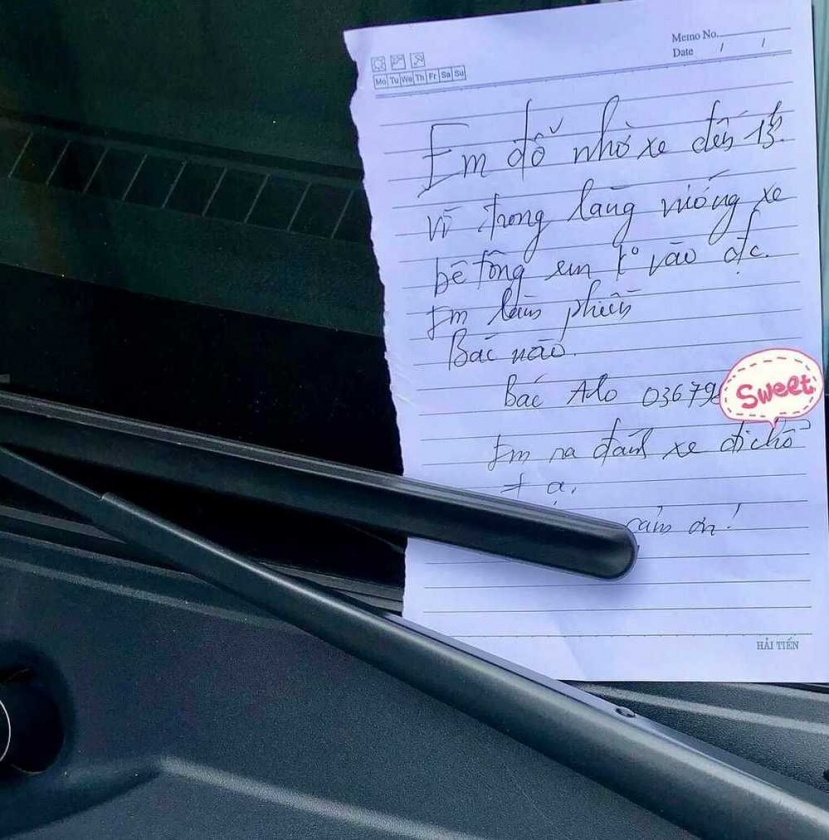 Memo No.
Date / /
Mo Tu We Th Fr Sa Su
Em đỗ nhờ xe đến 13h
vì trong làng vướng xe
bê tông em ko vào đc.
Em làm phiền
Bác nào.
Bác Alo 03679
Sweet
Em ra đánh xe đi chỗ
≠ ạ.
cảm ơn!
HẢI TIẾN